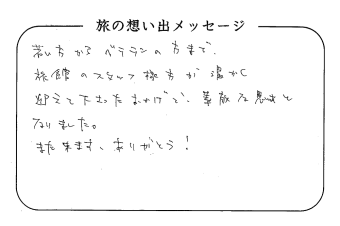 旅の想い出メッセージ
若い方からベテランの方まで、
旅館のスタッフ様方が温かく
迎えて下さったおかげで、素敵な思出と
なりました。
また来ます、ありがとう!